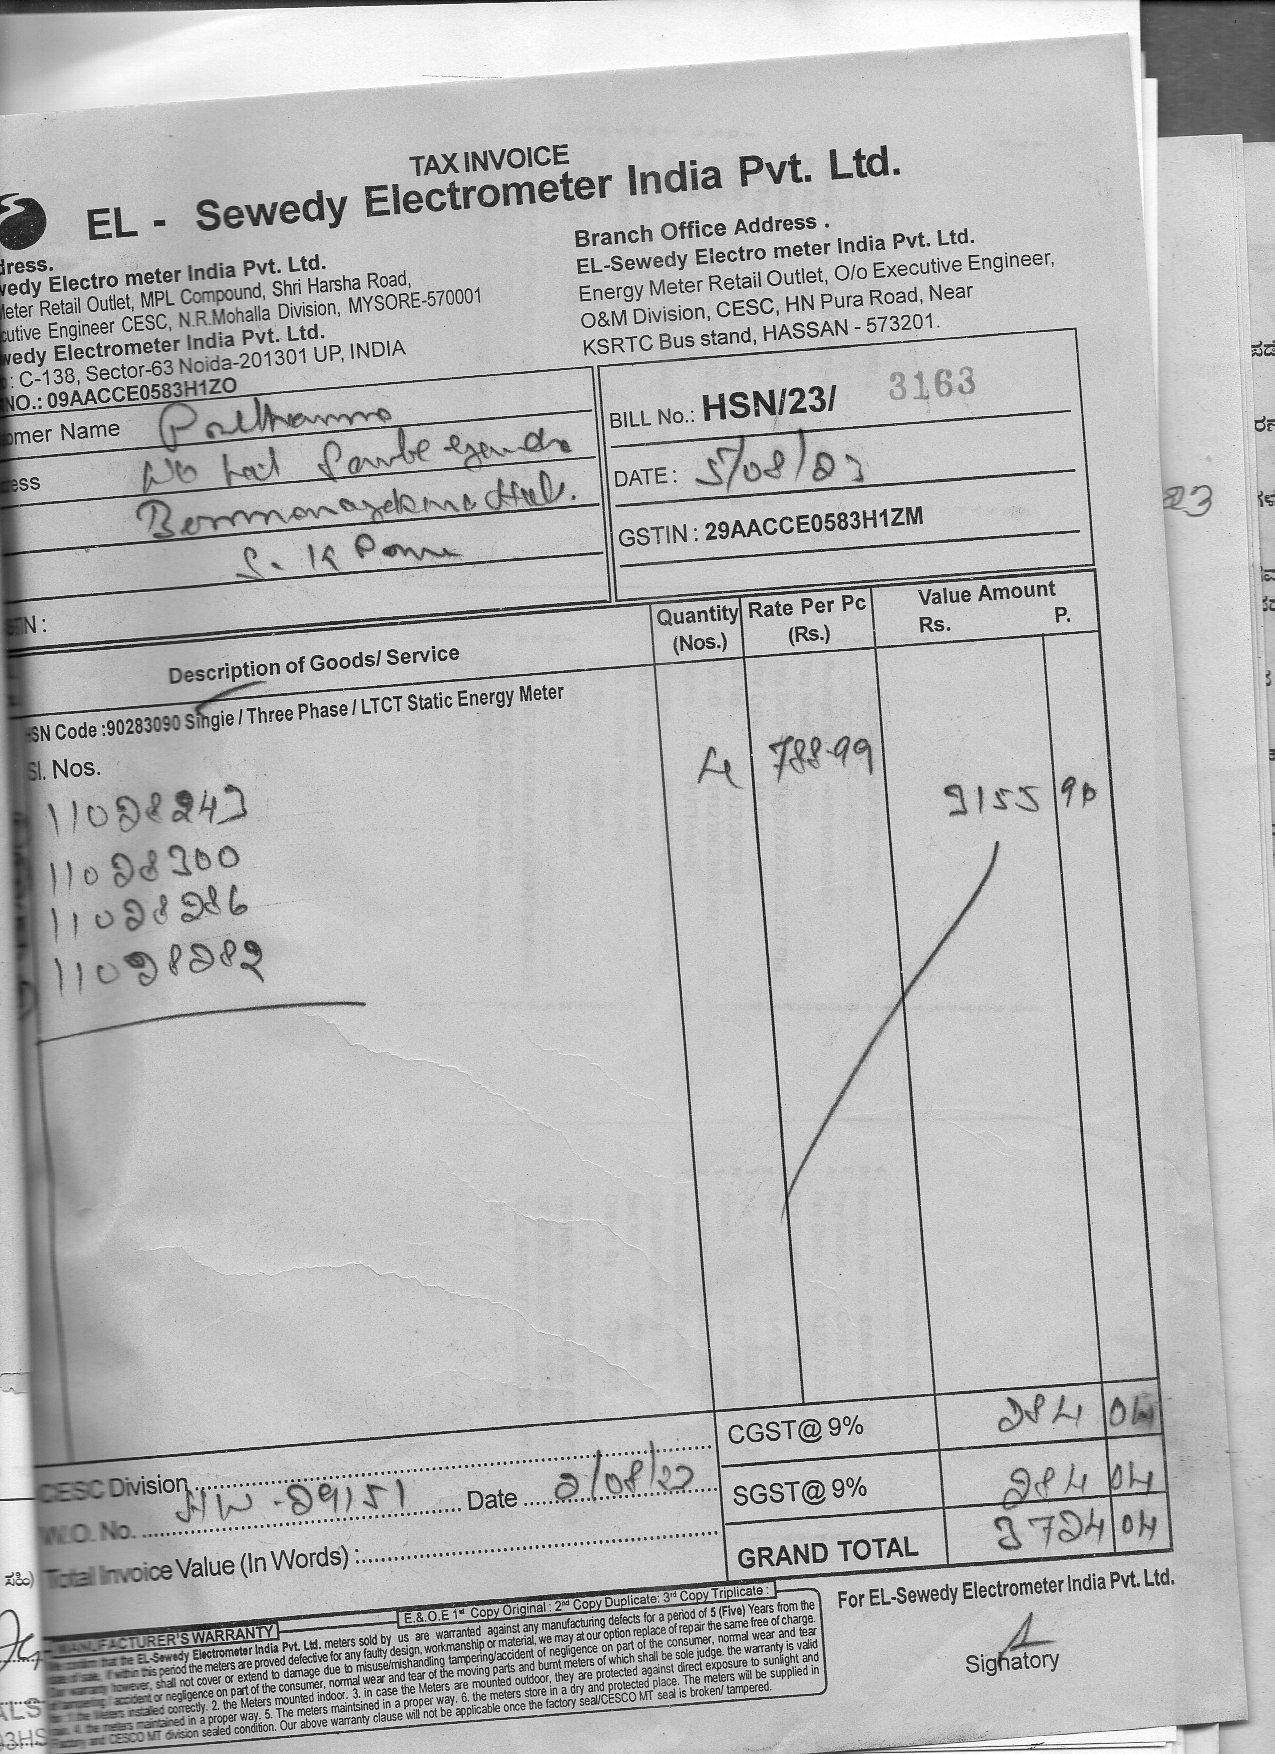 TAX INVOICE
EL - Sewedy Electrometer India Pvt. Ltd.
dress.
vedy Electro meter India Pvt. Ltd.
Meter Retail Outlet, MPL Compound, Shri Harsha Road,
cutive Engineer CESC, N.R.Mohalla Division, MYSORE-570001
wedy Electrometer India Pvt. Ltd.
: C-138, Sector-63 Noida-201301 UP, INDIA
NO.: 09AACCE0583H1ZO
Branch Office Address .
EL-Sewedy Electro meter India Pvt. Ltd.
Energy Meter Retail Outlet, O/o Executive Engineer,
O&M Division, CESC, HN Pura Road, Near
KSRTC Bus stand, HASSAN - 573201.
omer Name
ess
BILL No.: HSN/23/ 3163
DATE : 5/08/23
GSTIN : 29AACCE0583H1ZM
23
N :
Description of Goods/ Service
Quantity (Nos.)
Rate Per Pc (Rs.)
Value Amount
Rs. P.
SN Code :90283090 Singie / Three Phase / LTCT Static Energy Meter
Sl. Nos.
4 788-99
3155 96
11028243
11028300
11028286
11028282
CGST@ 9% 284 04
SGST@ 9% 284 04
GRAND TOTAL 3724 04
CESC Division
W.O. No. HW-29151 Date 2/08/23
Total Invoice Value (In Words) :
E.&.O.E 1st Copy Original : 2nd Copy Duplicate: 3rd Copy Triplicate :
MANUFACTURER'S WARRANTY
confirm that the EL-Sewedy Electrometer India Pvt. Ltd. meters sold by us are warranted against any manufacturing defects for a period of 5 (Five) Years from the
date of sale. If within this period the meters are proved defective for any faulty design, workmanship or material, we may at our option replace of repair the same free of charge.
Our warranty however, shall not cover or extend to damage due to misuse/mishandling tampering/accident of negligence on part of the consumer, normal wear and tear
accident or negligence on part of the consumer, normal wear and tear of the moving parts and burnt meters of which shall be sole judge. the warranty is valid
Meters installed correctly. 2. the Meters mounted indoor. 3. in case the Meters are mounted outdoor, they are protected against direct exposure to sunlight and
rain. 4. the meters maintained in a proper way. 5. The meters maintsined in a proper way. 6. the meters store in a dry and protected place. The meters will be supplied in
Factory and CESCO MT division sealed condition. Our above warranty clause will not be applicable once the factory seal/CESCO MT seal is broken/ tampered.
For EL-Sewedy Electrometer India Pvt. Ltd.
Sighatory